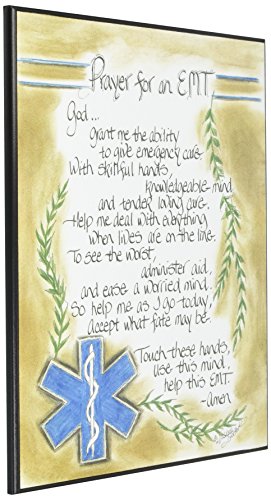 Prayer for an EMT
God...
grant me the ability
to give emergency care.
With skillful hands,
knowledgeable mind
and tender loving care.
Help me deal with everything
when lives are on the line.
To see the worst,
administer aid,
and ease a worried mind.
So help me as I go today,
accept what fate may be.
Touch these hands,
use this mind,
help this EMT.
-Amen